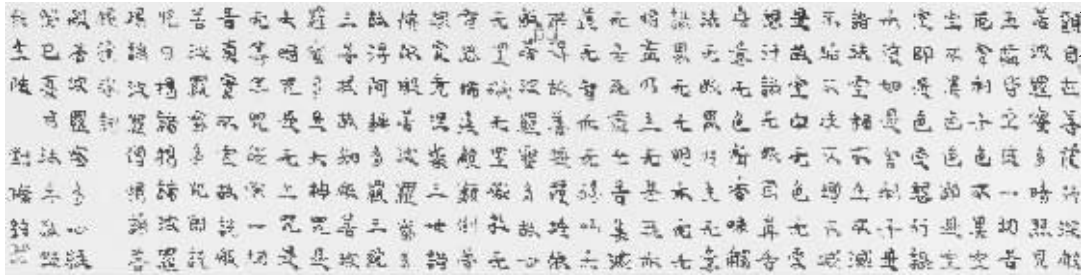 觀自在菩薩行深般
若波羅蜜多時照見
五蘊皆空度一切苦
厄舍利子色不異空
空不異色色即是空
空即是色受想行識
亦復如是舍利子是
諸法空相不生不滅
不垢不淨不增不減
是故空中无色无受
想行識无眼耳鼻舌
身意无色聲香味觸
法无眼界乃至无意
識界无无明亦无无
明盡乃至无老死亦
无老死盡无苦集滅
道无智亦无得以无
所得故菩提薩埵依
般若波羅蜜多故心
无罣礙无罣礙故无
有恐怖遠離顛倒夢
想究竟涅槃三世諸
佛依般若波羅蜜多
故得阿耨多羅三藐
三菩提故知般若波
羅蜜多是大神咒是
大明咒是无上咒是
无等等咒能除一切
苦真實不虛故說般
若波羅蜜多咒即說
咒曰揭諦揭諦波羅
揭諦波羅僧揭諦菩
提薩婆訶
般若波羅蜜多心經